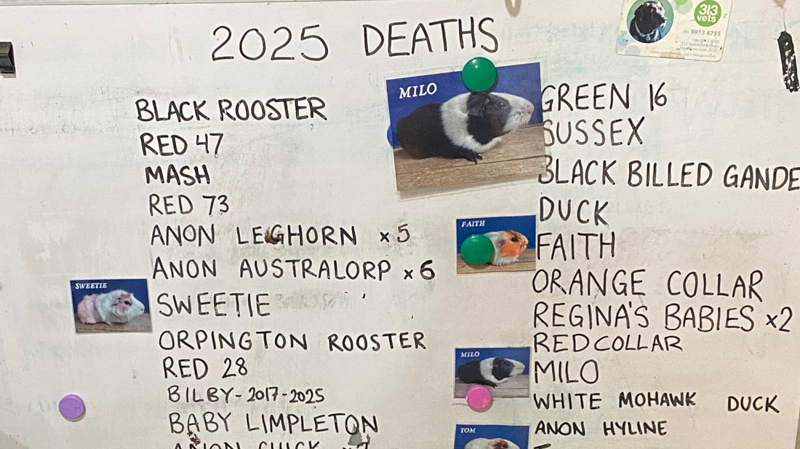 2025 DEATHS
313
vets
9813 4795
BLACK ROOSTER
RED 47
MASH
RED 73
ANON LEGHORN x5
ANON AUSTRALORP x6
SWEETIE
SWEETIE
ORPINGTON ROOSTER
RED 28
BILBY - 2017-2025
BABY LIMPLETON
ANON CHICK x7
MILO
GREEN 16
SUSSEX
BLACK BILLED GANDE
DUCK
FAITH
FAITH
ORANGE COLLAR
REGINA'S BABIES x2
RED COLLAR
MILO
MILO
WHITE MOHAWK DUCK
TOM
ANON HYLINE